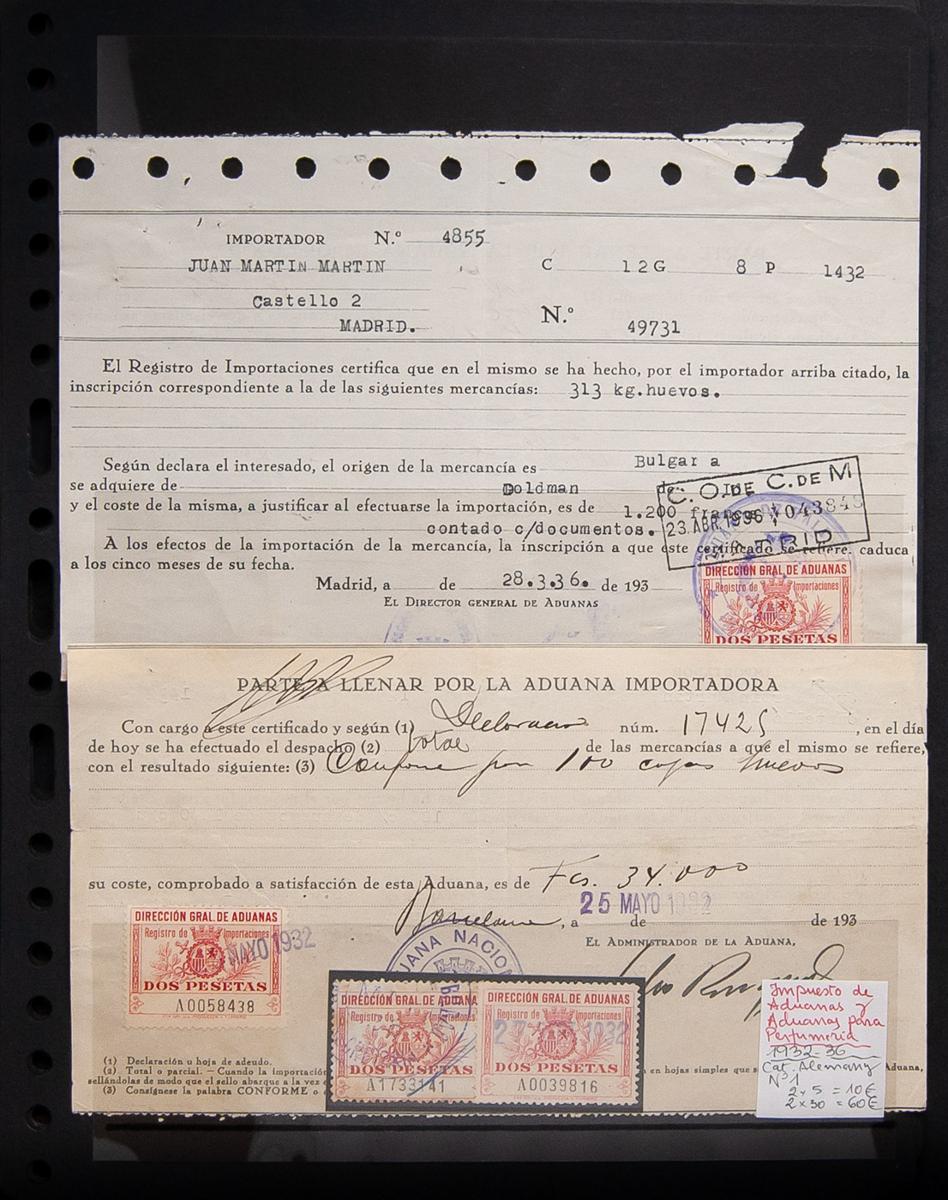 IMPORTADOR N.º 4855
JUAN MARTIN MARTIN
Castello 2
MADRID.
C 12G 8 P 1432
N.º 49731
El Registro de Importaciones certifica que en el mismo se ha hecho, por el importador arriba citado, la
inscripción correspondiente a la de las siguientes mercancías: 313 kg.huevos.
Según declara el interesado, el origen de la mercancía es Bulgar a
se adquiere de Doldman de
y el coste de la misma, a justificar al efectuarse la importación, es de 1.200
contado c/documentos.
C. O. DE C. DE M
23 ABR. 1936
A los efectos de la importación de la mercancía, la inscripción a que este certificado se refiere, caduca
a los cinco meses de su fecha.
Madrid, a de 28.3.36. de 193
EL DIRECTOR GENERAL DE ADUANAS
DIRECCIÓN GRAL DE ADUANAS
Registro de Importaciones
DOS PESETAS
PARTE A LLENAR POR LA ADUANA IMPORTADORA
Con cargo a este certificado y según (1) núm. 17425 , en el día
de hoy se ha efectuado el despacho (2) total de las mercancías a que el mismo se refiere,
con el resultado siguiente: (3) Conforme por 100 cajas huevos
su coste, comprobado a satisfacción de esta Aduana, es de Fcs. 34.000
Barcelona, a 25 MAYO 1932 de de 193
EL ADMINISTRADOR DE LA ADUANA,
DIRECCIÓN GRAL. DE ADUANAS
Registro de Importaciones
MAYO 1932
DOS PESETAS
A0058438
ADUANA NACIONAL
DIRECCIÓN GRAL. DE ADUANAS
Registro de Importaciones
DOS PESETAS
A1733141
DIRECCIÓN GRAL. DE ADUANAS
Registro de Importaciones
1932
DOS PESETAS
A0039816
(1) Declaración u hoja de adeudo.
(2) Total o parcial. — Cuando la importación en hojas simples que se Aduana,
sellándolas de modo que el sello abarque a la vez
(3) Consígnese la palabra CONFORME o
Impuesto de
Aduanas y
Aduanas para
Perfumeria
1932-36
Cat. Alemany
Nº 1
2 x 5 = 10€
2 x 30 = 60€